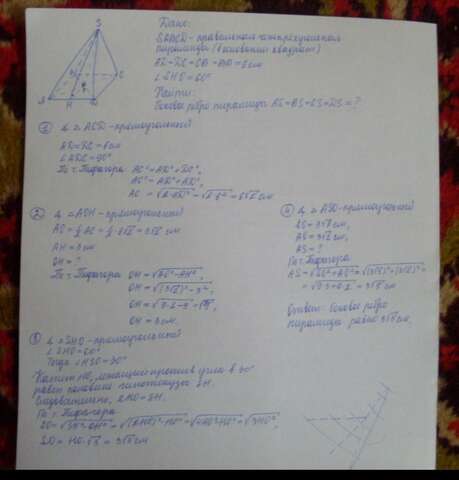 Дано:
SABCD - правильная четырёхугольная
пирамида (в основании квадрат)
AB=DC=CB=AD=6см
∠SHO=60°
Найти:
боковое ребро пирамиды AS=BS=CS=DS=?
S
A
H
D
C
① Δ ACD - прямоугольный
AD=DC=6см
∠ADC=90°
По т. Пифагора AC²=AD²+DC²,
AC²=AD²+AD²,
AC=√2·AD²=√2·6²=6√2 см
② Δ AOH - прямоугольный
AO=½AC=½·6√2=3√2 см
AH=3см
OH=?
По т. Пифагора OH=√AO²-AH²,
OH=√(3√2)²-3²,
OH=√9·2-9=√9,
OH=3см.
③ Δ SHO - прямоугольный
∠SHO=60°
Тогда ∠HSO=30°
Катет HO, лежащий против угла в 30°
равен половине гипотенузы SH.
Следовательно, 2HO=SH.
По т. Пифагора
SO=√SH²-OH²=√(2HO)²-HO²=√4HO²-HO²=√3HO²,
SO=HO·√3=3√3 см
④ Δ ASO - прямоугольный
AO=3√2 см,
AS=?
По т. Пифагора
Ответ: боковое ребро
пирамиды равно